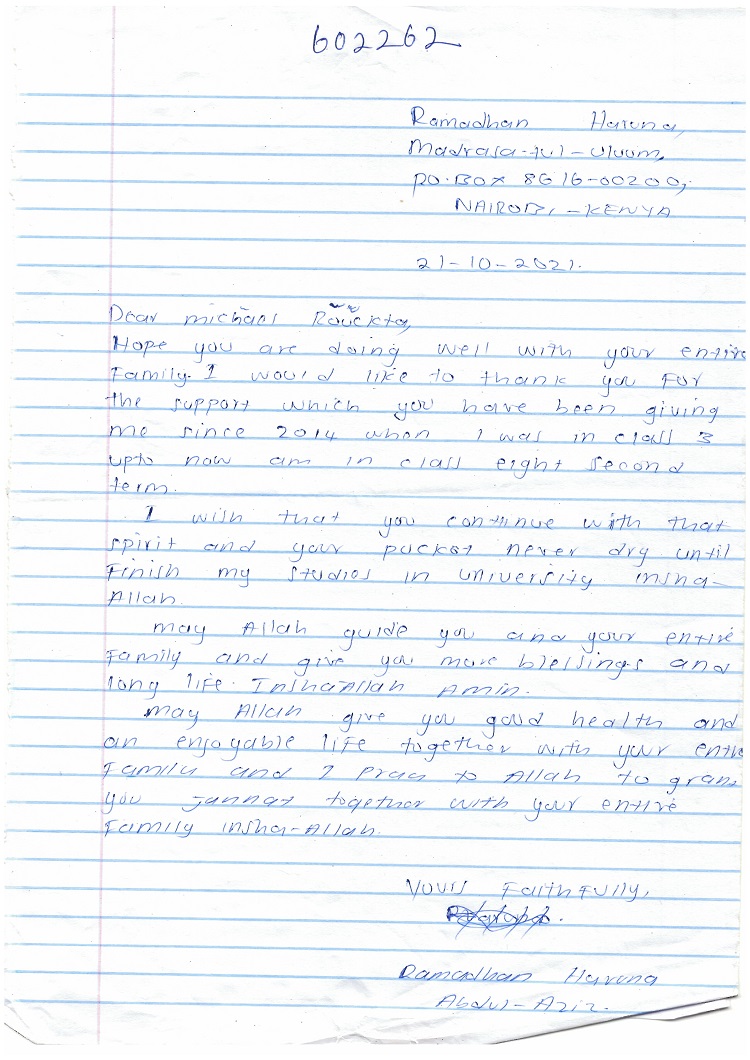 602262
Ramadhan Haruna,
Madrasa-tul-uluum,
PO.BOX 8616-00200,
NAIROBI,-KENYA
21-10-2021.
Dear michael
Hope you are doing well with your entire
Family. I would like to thank you For
the support which you have been giving
me since 2014 when I was in class 3
upto now am in class eight second
term.
I wish that you continue with that
spirit and your pocket never dry until
Finish my studies in university insha-
Allah.
may Allah guide you and your entire
Family and give you more blessings and
long life. Insha'Allah Amin.
may Allah give you good health and
an enjoyable life together with your entire
Family and I pray to Allah to grant
you jannat together with your entire
Family insha-Allah.
Yours Faithfully,
Ramadhan Haruna
Abdul-Aziz.